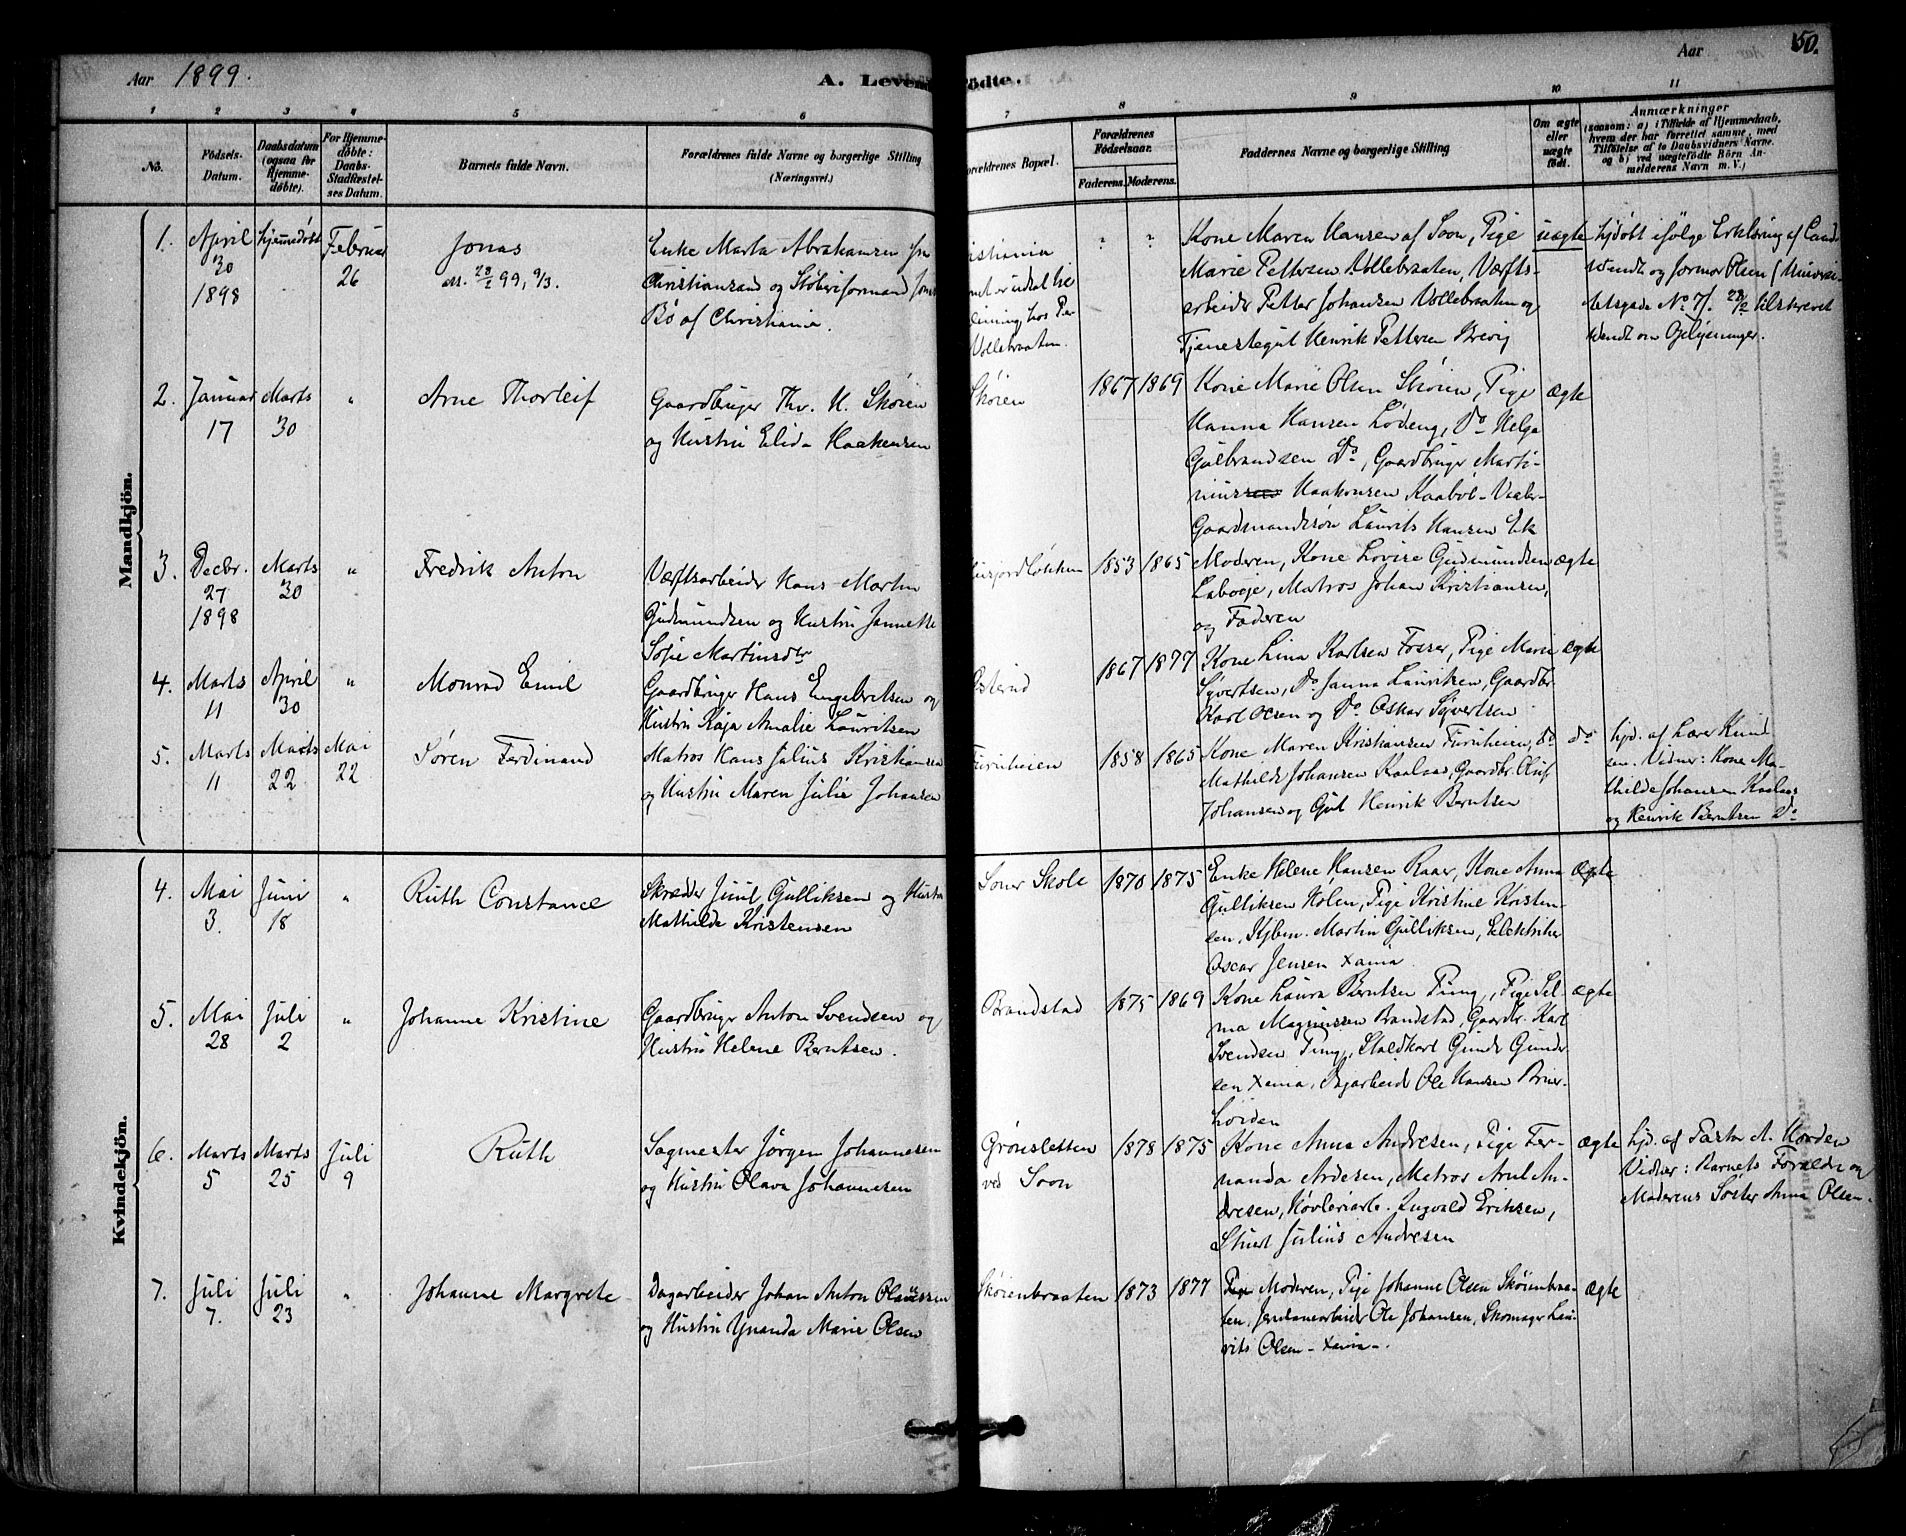 Aar 1899.
A. Levende
födte.
Aar
150.
1 2 3 4 5 6 7 8 9 10 11
No.
Födsels-
Datum.
Daabsdatum
(ogsaa for
Hjemme-
döbte).
For Hjemme-
döbte:
Daabs-
Stadfæstel-
ses Datum.
Barnets fulde Navn.
Forældrenes fulde Navne og borgerlige Stilling
(Næringsvei.)
Forældrenes Bopæl.
Forældrenes
Födselsaar.
Faderens. Moderens.
Faddernes Navne og borgerlige Stilling
Om ægte
eller
uægte
födt.
Anmærkninger
(saasom: a) i Tilfælde af Hjemmedaab,
hvem der har forrettet samme, med
Tilföielse af to Daabsvidners Navne.
og b) ved uægtefödte Börn An-
melderens Navn m. V.)
Mandkjön.
1.
April
30
1898
hjemmedöbt
Februar
26
Jonas
99, 9/3.
Enke Marta Abrahamsen fra
Christianssand og Stöberiformand Jonas
Bö af Christiania.
Christiania
Vollebraaten.
? ?
Kone Maren Hansen af Soon, Pige
Marie Pettersen Vollebraaten, Værfts-
arbeider Petter Johansen Vollebraaten og
Tjenestegut Henrik Pettersen Brevig
uægte
hjdöbt ifölge Erklæring af Cand.
Wendt og Jormor Olsen (Universi-
tetsgade No 7). 28/2 tilskrevet
Wendt om Oplysninger.
2.
Januar
17
Marts
30
"
Arne Thorleif
Gaardbruger Thv. H. Sköien
og Hustru Elida Haakensen
Sköien
1867 1869
Kone Marie Olsen Sköien, Pige
Hanna Hansen Lödeng, Do Helga
Gulbrandsen Do, Gaardbruger Marti-
nius Haakonsen Kaaböl-
Gaardmandssön Laurits Hansen Ek
ægte
3.
Decbr.
27
1898
Marts
30
"
Fredrik Anton
Værftsarbeider Hans Martin
Gudmundsen og Hustru Jannette
Sofie Martinsdtr
1853 1865
Moderen, Kone Lovise Gudmundsen
Labo, Matros Johan Kristiansen,
og Faderen
ægte
4.
Marts
11
April
30
"
Monrad Emil
Gaardbruger Hans Engebretsen og
Hustru Kaja Amalie Lauritsen
Österud
1867 1877
Kone Lina Karlsen Fosser, Pige Marie
Syvertsen, Do Janna Lauritsen, Gaardbr.
Karl Olsen og Do Oskar Syvertsen
ægte
5.
Marts
11
Marts
22
Mai
22
Sören Ferdinand
Matros Hans Julius Kristiansen
og Hustru Maren Julie Johansen
Furuheien
1858 1865
Kone Maren Kristiansen Furuheien, Do
Mathilde Johansen Kaalaas, Gaardbr. Oluf
Johansen og Gut Henrik Berntsen
do
hjd. af Lærer Knud-
sen. Vidner: Kone Ma-
thilde Johansen Kaalaas
og Henrik Berntsen Do
Kvindekjön.
4.
Mai
3.
Juni
18
"
Ruth Constance
Skrædder Juul Gulliksen og Hustru
Mathilde Kristensen
Soner Skole
1870 1875
Enke Helene Hansen Raaer, Kone Anna
Gulliksen Holen, Pige Kristine Kristen-
sen, Kjbm. Martin Gulliksen, Elektriker
Oscar Jensen Xania
ægte
5.
Mai
28
Juli
2
"
Johanne Kristine
Gaardbruger Anton Svendsen og
Hustru Helene Berntsen.
Brandstad
1875 1869
Kone Laura Berntsen Pung, Pige Sel-
ma Magnussen Brandstad, Gaardbr. Karl
Svendsen Pung, Staldkarl Gunder Gunder-
sen Xania, Dagarbeid. Ole Hansen
ægte
6.
Marts
5
Marts
25
Juli
9
Ruth
Sagmester Jörgen Johannesen
og Hustru Olava Johannesen
Grönsletten
ved Soon
1878 1875
Kone Anna Andresen, Pige Fer-
nanda Andresen, Matros Arnt An-
dresen, Hövleriarb. Ingvald Eriksen,
Stuert Julius Andresen
ægte
hjd. af Pastor A. Horden
Vidner: Barnets Forældre og
Moderens Söster Anna Olsen.
7.
Juli
7.
Juli
23
"
Johanne Margrete
Dagarbeider Johan Anton Olaussen
og Hustru Ynanda Marie Olsen
Sköienbraaten
1873 1877
Pige Moderen, Pige Johanne Olsen Sköienbraa-
ten, Jernbanearbeider Ole Johansen, Skomager Lau-
rits Olsen - Xania -.
ægte